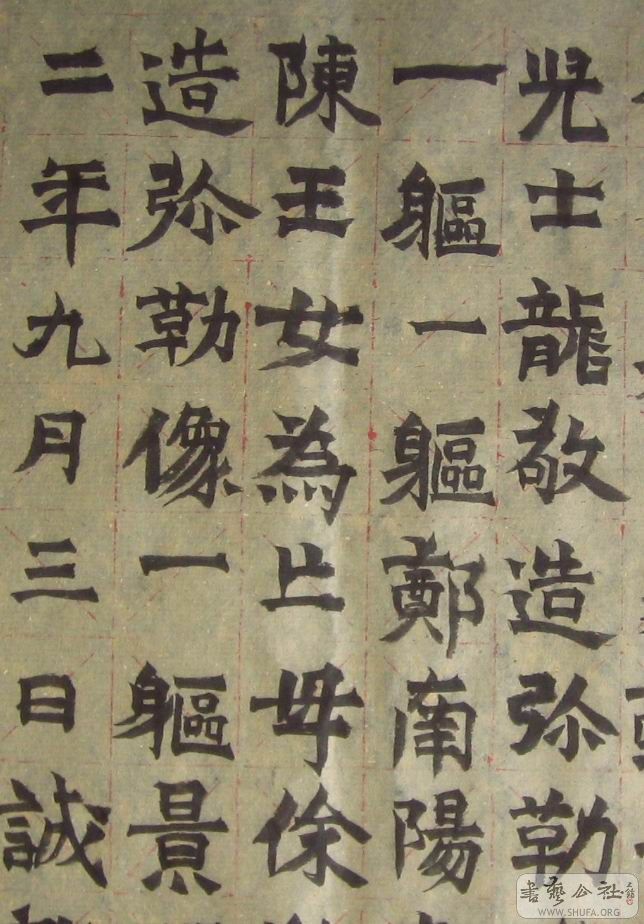 兒士龍敬造弥勒
一軀一軀鄭南陽
陳王女為亡母徐
造弥勒像一軀景
二年九月三日誠
書藝公社
WWW.SHUFA.ORG